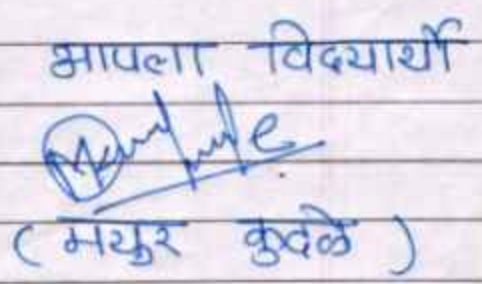 आपला विद्यार्थी
(मयुर कुदळे)